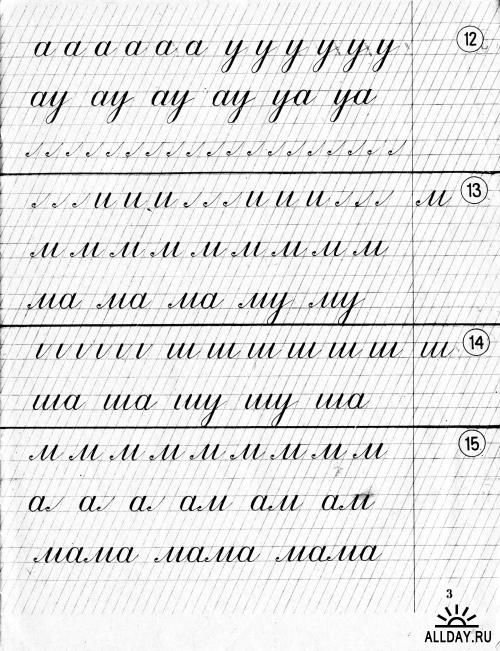 а а а а а а у у у у у у 12
ау ау ау ау уа уа
и и и и и и м 13
м м м м м м м м м
ма ма ма му му
ш ш ш ш ш ш ш 14
ша ша шу шу ша
м м м м м м м м м 15
а а а ам ам ам
мама мама мама
3
ALLDAY.RU